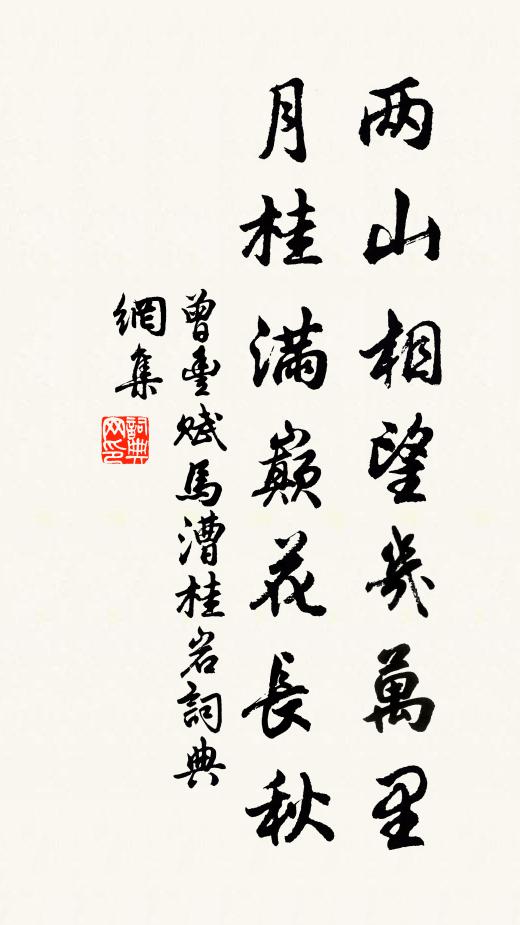 两山相望幾萬里
月桂滿巔花長秋
曾豐賦馬漕桂岩詞典
網集
詞典
网印